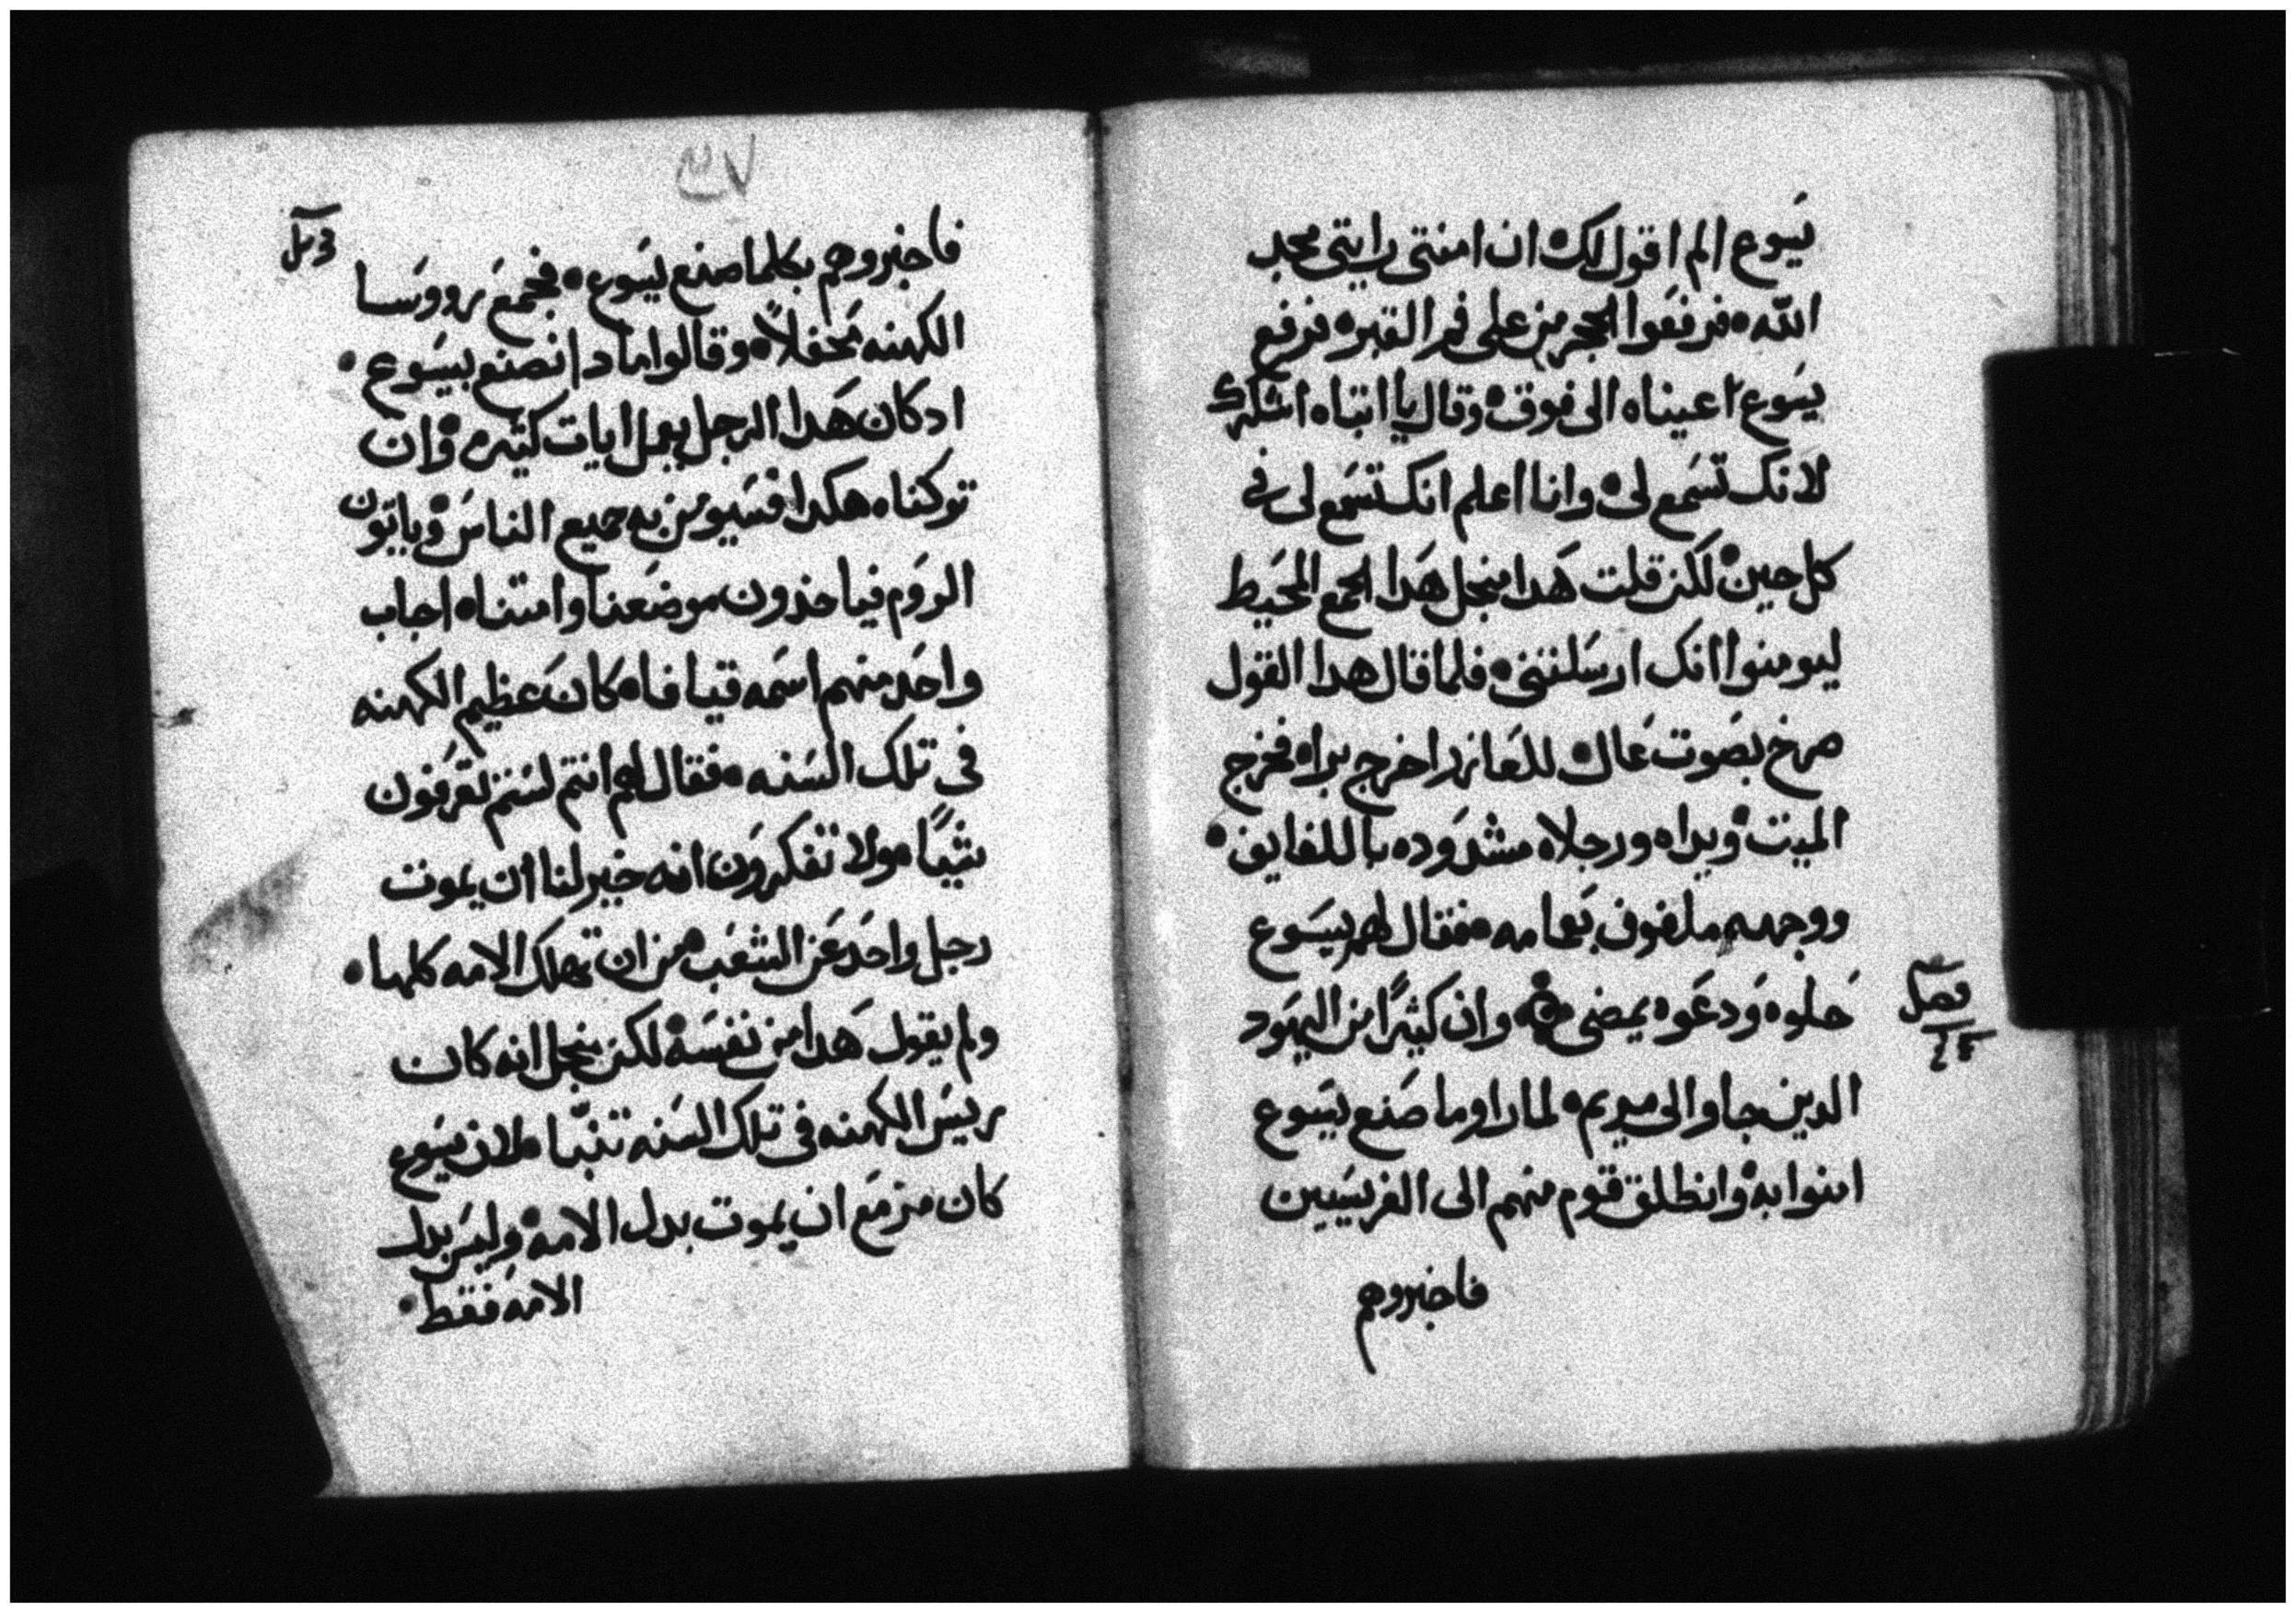 يسوع الم اقول لك ان امنتي رايتي مجد
الله فرفعوا الحجر من على فم القبر فرفع
يسوع اعيناه الى فوق وقال يا ابتاه اشكرك
لانك تسمع لي وانا اعلم انك تسمع لي في
كل حين لكن قلت هدا منجل هدا الجمع المحيط
ليومنوا انك ارسلتني فلما قال هدا القول
صرخ بصوت عال للعازر اخرج برا فخرج
الميت ويداه ورجلاه مشدوده باللفايف
ووجهه ملفوف بعمامه فقال لهم يسوع
حلوه ودعوه يمضي وان كثيرًا من اليهود
الدين جاوا الى مريم لما راوا ما صنع يسوع
امنوا به وانطلق قوم منهم الى الفريسيين
فاخبروهم
فصل
فاخبروهم بكلما صنع يسوع فجمع رووسا
الكهنه محفلاً وقالوا مادا نصنع بيسوع
ادكان هدا الرجل يعمل ايات كثيره وان
توكناه هكدا فسيومن به جميع الناس وياتون
الروم فياخذون موضعنا وامتناه اجاب
واحد منهم اسمه قيافا كان عظيم الكهنه
في تلك السنه فقال لهم انتم لستم تعرفون
شيًا ولا تفكرون انه خير لنا ان يموت
رجل واحد عن الشعب من ان تهلك الامه كلها
ولم يقول هدا من نفسه لكن منجل انه كان
ريس الكهنه في تلك السنه تنبّا لان يسوع
كان مزمع ان يموت بدل الامه وليس بدل
الامه فقط